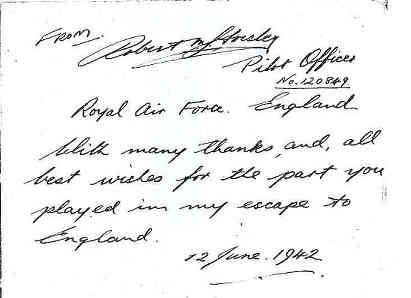 From.
Robert M Horsley
Pilot Officer
No. 120849
Royal Air Force. England
With many thanks, and, all
best wishes for the part you
played in my escape to
England.
12 June. 1942